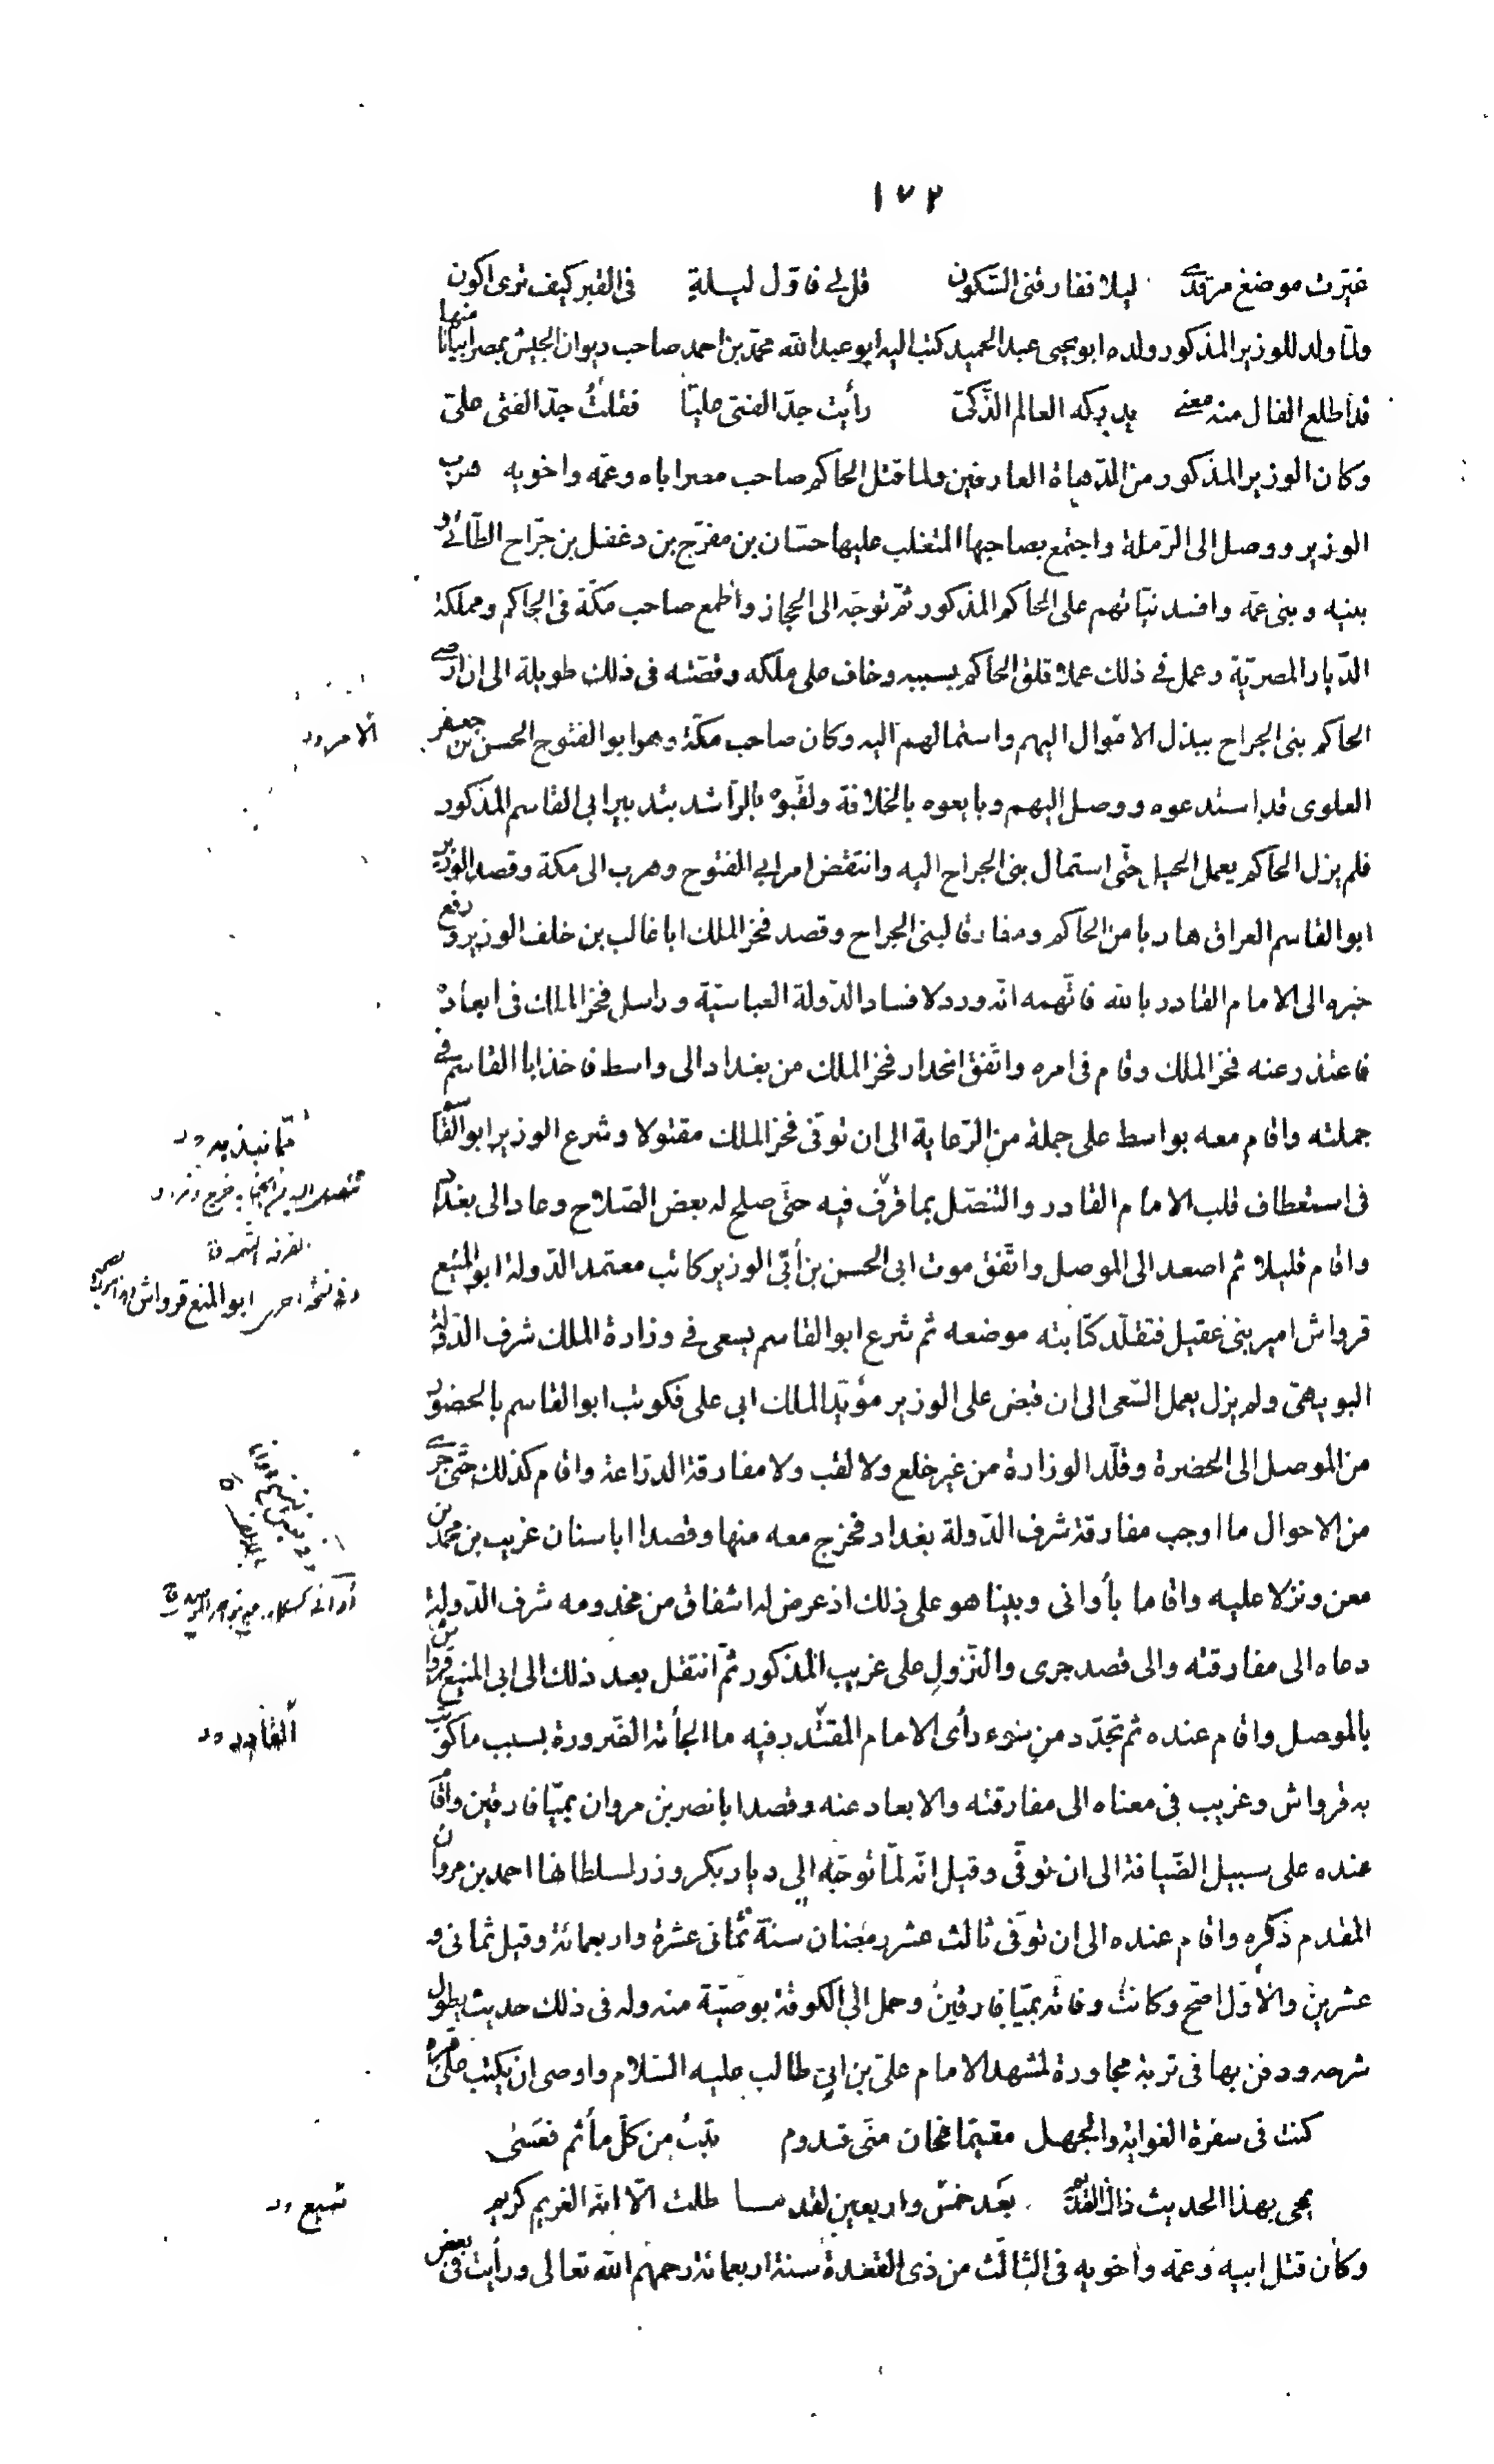 ١٧٢
غيرت موضع مرقدي ليلا ففارقنى السكون قل لى فاول ليلة فى القبر كيف ترى اكون
ولما ولد للوزير المذكور ولده ابو يحيى عبد الحميد كتب اليه ابو عبد الله محمد بن احمد صاحب ديوان الجيش بمصر ابياتا منها
قد أطلع الفال منه معنى يدركه العالم الذكى رأيت جد الفتى عليا فقلت جد الفتى على
وكان الوزير المذكور من الدهاة العارفين ولما قتل الحاكم صاحب مصر اباه وعمه واخويه هرب
الوزير ووصل الى الرملة واجتمع بصاحبها المتغلب عليها حسان بن مفرج بن دغفل بن جراح الطائى و
بنيه وبنى عمه وافسد نياتهم على الحاكم المذكور ثم توجه الى الحجاز وأطمع صاحب مكة فى الحاكم ومملكة
الديار المصرية وعمل فى ذلك عملا قلق الحاكم بسببه وخاف على ملكه وقصته فى ذلك طويلة الى ان ارضى
الحاكم بنى الجراح ببذل الاموال اليهم واستمالهم اليه وكان صاحب مكة وهو ابو الفتوح الحسن بن جعفر
العلوى قد استدعوه ووصل اليهم وبايعوه بالخلافة ولقبوه بالراشد بتدبير ابى القاسم المذكور
فلم يزل الحاكم يعمل الحيل حتى استمال بنى الجراح اليه وانتقض امر ابى الفتوح وهرب الى مكة وقصد الوزير
ابو القاسم العراق هاربا من الحاكم ومفارقا لبنى الجراح وقصد فخر الملك ابا غالب بن خلف الوزير ورفع
خبره الى الامام القادر بالله فاتهمه انه ورد لافساد الدولة العباسية وراسل فخر الملك فى ابعاده
فاعتذر عنه فخر الملك وقام فى امره واتفق انحدار فخر الملك من بغداد الى واسط فاخذ ابا القاسم فى
جملته واقام معه بواسط على جملة من الرعاية الى ان توفى فخر الملك مقتولا وشرع الوزير ابو القاسم
فى استعطاف قلب الامام القادر والتنصل بما قرف فيه حتى صلح له بعض الصلاح وعاد الى بغداد
واقام قليلا ثم اصعد الى الموصل واتفق موت ابى الحسن بن أبى الوزير كاتب معتمد الدولة ابو المنيع
قرواش امير بنى عقيل فتقلد كتابته موضعه ثم شرع ابو القاسم يسعى فى وزارة الملك شرف الدولة
البويهى ولم يزل يعمل السعى الى ان قبض على الوزير مؤيد الملك ابى على فكوتب ابو القاسم بالحضور
من الموصل الى الحضرة وقلد الوزارة من غير خلع ولا لقب ولا مفارقة الدراعة واقام كذلك حتى جرى
من الاحوال ما اوجب مفارقة شرف الدولة بغداد فخرج معه منها وقصدا اباسنان غريب بن محمد بن
معن ونزلا عليه واقاما بأوانى وبينا هو على ذلك اذ عرض له اشفاق من مخدومه شرف الدولة
دعاه الى مفارقته والى قصد جرى والنزول على غريب المذكور ثم انتقل بعد ذلك الى ابى المنيع قرواش
بالموصل واقام عنده ثم تجدد من سوء رأى الامام المقتدر فيه ما الجأته الضرورة بسبب ما كوتب
به قرواش وغريب فى معناه الى مفارقته والابعاد عنه وقصد ابا نصر بن مروان بميافارقين واقام
عنده على سبيل الضيافة الى ان توفى وقيل انه لما توجه الى ديار بكر وزر لسلطانها احمد بن مروان
المقدم ذكره واقام عنده الى ان توفى ثالث عشر رمضان سنة ثمانى عشرة واربعمائة وقيل ثمانى و
عشرين والاول اصح وكانت وفاته بميافارقين وحمل الى الكوفة بوصية منه وله فى ذلك حديث يطول
شرحه ودفن بها فى تربة مجاورة لمشهد الامام على بن ابى طالب عليه السلام واوصى ان يكتب على قبره
كنت فى سفرة الغواية والجهل مقيما فحان منى قدوم تبت من كل مأثم فعسى
يمحى بهذا الحديث ذاك القديم بعد خمس واربعين لقد ما طلت الا ان الغريم كريم
وكان قتل ابيه وعمه واخويه فى الثالث من ذى القعدة سنة اربعمائة رحمهم الله تعالى ورأيت فى بعض
الامر
مما نبذ به
وفى نسخة اخرى ابو المنع قرواش
القادر
تسع